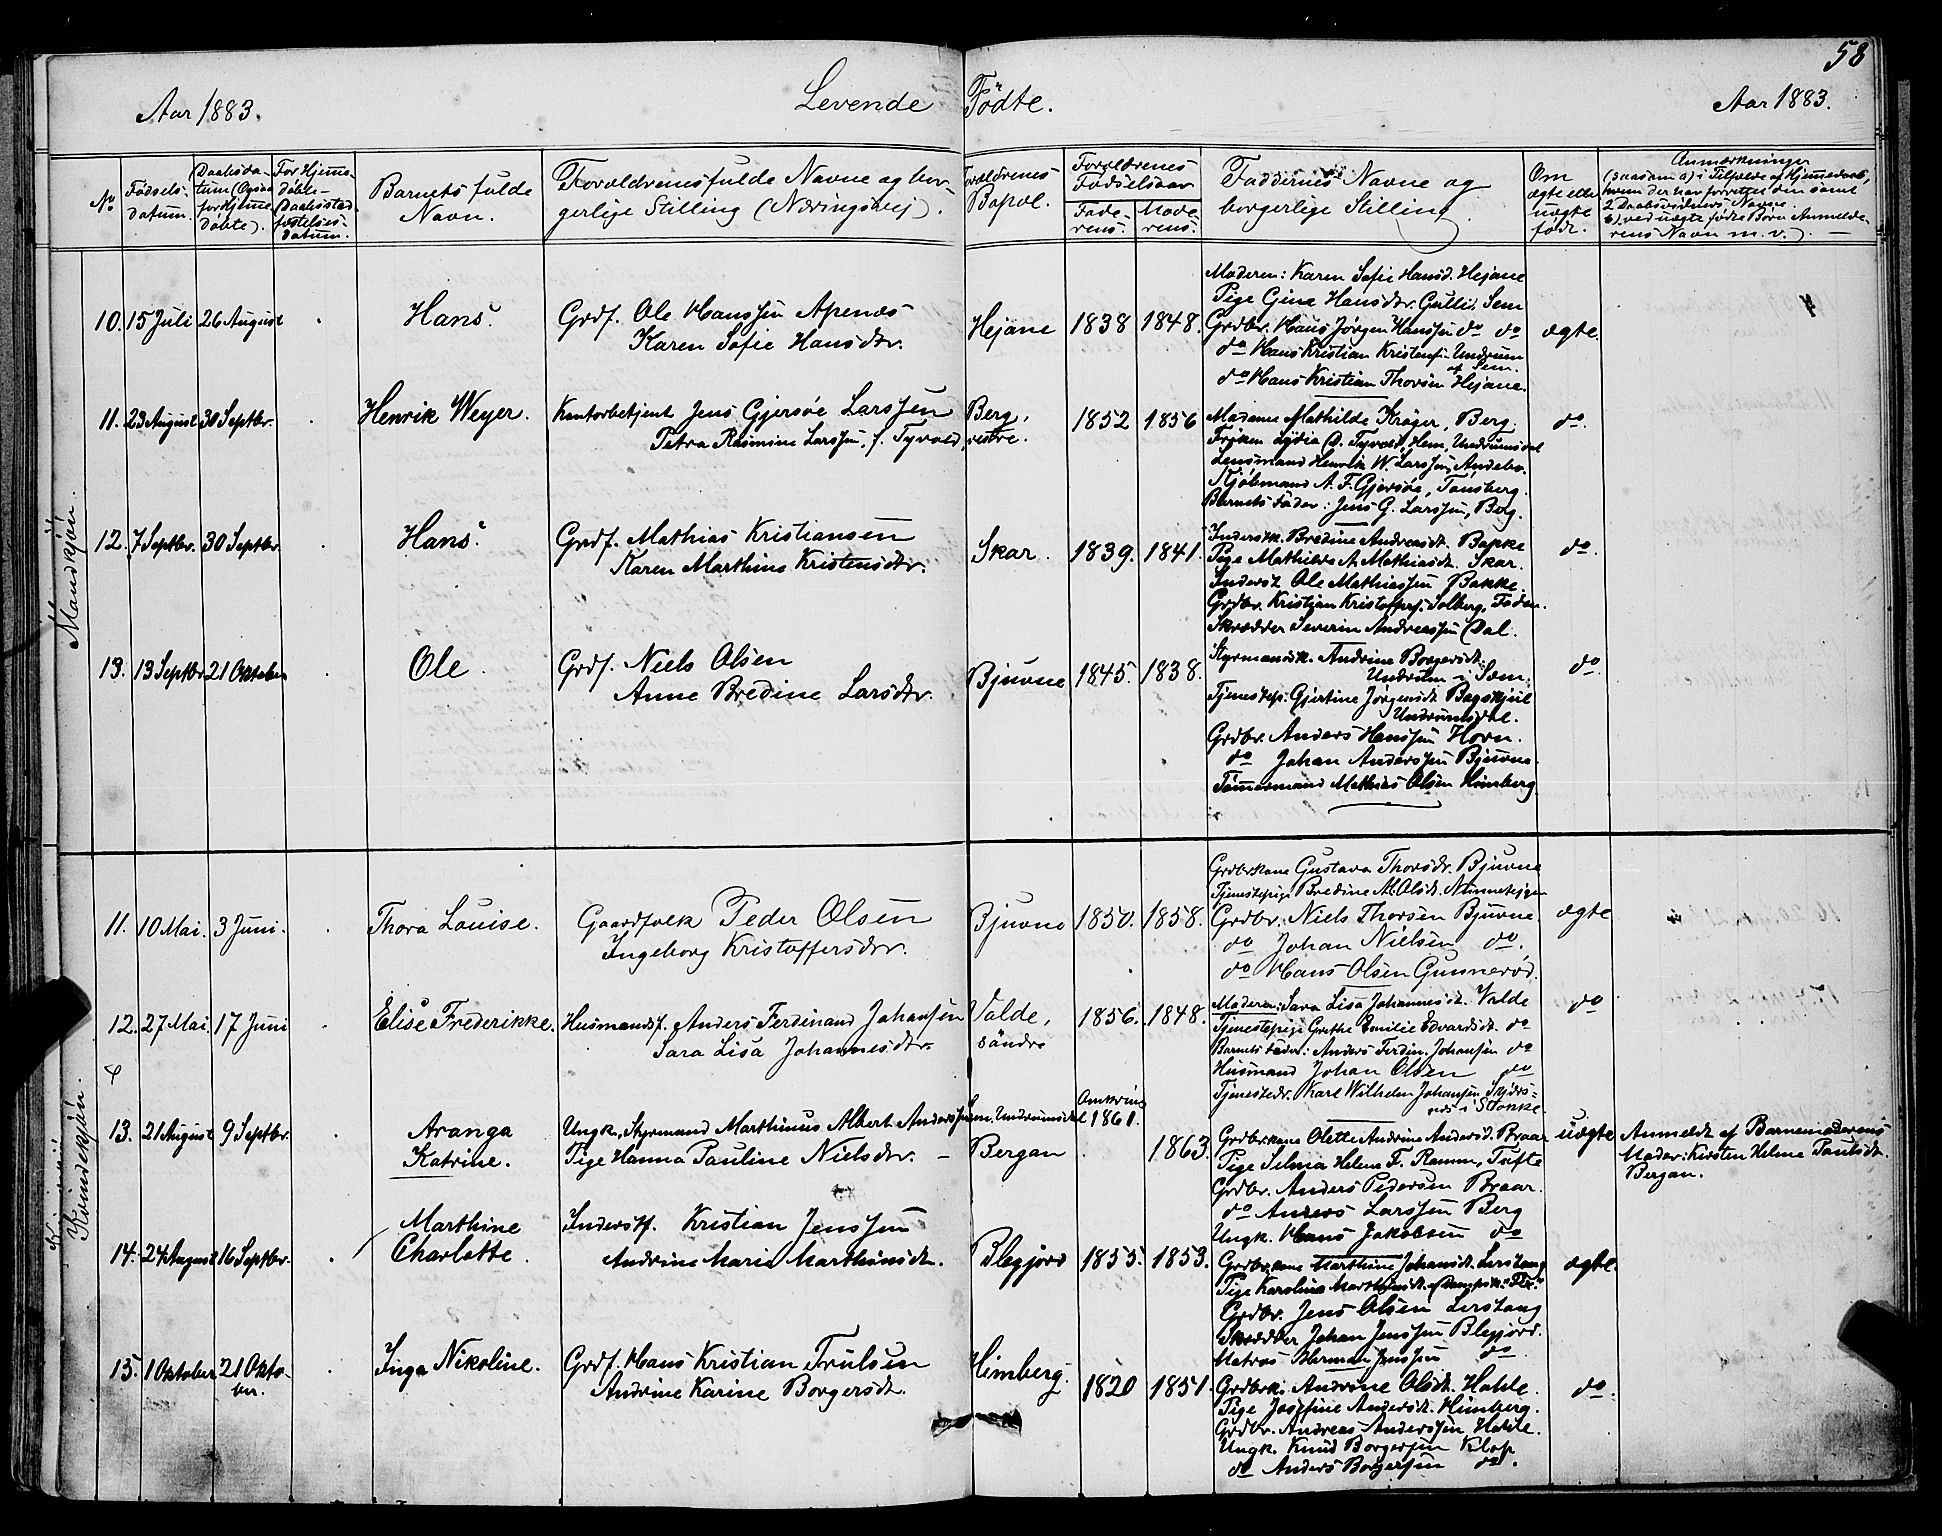 58
Aar 1883.
Levende Födte.
Aar 1883.
No
Födsels-
datum.
Daabsda-
tum (Ogsaa
for Hjemme
døbte).
For Hjemme-
døbte-
(Daabsstad-
fæstelses-
datum.
Barnets fulde
Navn.
Forældrenes fulde Navne og bor-
gerlige Stilling (Næringsvej).
Forældrenes
Bopæl.
Forældrenes
Fødselsaar
Fade-
rens.
Mode-
rens.
Faddernes Navne og
borgerlige Stilling
Om
ægte eller
uægte
født.
Anmærkninger
(saasom a) i Tilfælde af Hjemmedaab,
hvem der har forrettet den samt
2 Daabsvidners Navne.
b) ved uægte fødte Børn Anmelde-
rens Navn m. v.). —
Mandkjön.
10. 15 Juli 26 August
Hans.
Grdf. Ole Hanssen Apenæs
Karen Sofie Hansdtr.
Hejane 1838 1848.
Moderen: Karen Sofie Hansd. Hejane
Pige Gina Hansdtr. Gulli, Sem
Grdbr. Hans Jörgen Hanssen do do
do Hans Kristian Kristensen Undrum
af Sem.
do Hans Kristian Thorsen Hejane.
ægte.
11. 23 August 30 Septbr.
Henrik Weyer.
Kontorbetjent Jens Gjersöe Larssen
Petra Rasmine Larssen, f. Tyvold,
Berg,
vestre.
1852 1856
Madame Mathilde Kröger, Berg.
Fröken Lydia D. Tyvold, Hem, Undrumsdal
Lensmand Henrik W. Larssen, Andebo.
Kjöbmand A. F. Gjersöe, Tönsberg.
Barnets Fader: Jens G. Larssen, Berg.
do.
12. 7 Septbr. 30 Septbr.
Hans.
Grdf. Mathias Kristiansen
Karen Marthine Kristensdtr.
Skar. 1839. 1841.
Inderstk. Bredine Andreasdt. Bakke
Pige Mathilde A. Mathiasdt. Skar.
Inderst Ole Mathiassen Bakke.
Grdbr. Kristian Kristoffers. Solberg, Foden.
Skrædder Severin Andreassen Dal.
do.
13. 13 Septbr. 21 Oktober
Ole.
Grdf. Niels Olsen
Anne Bredine Larsdtr.
Bjuvne 1845. 1838.
Styrmandsk. Andrine Borgersdt.
Undrum i Sæm.
Tjenestep. Gjertine Jörgensdt. Bagskjeil
Undrumsdal.
Grdbr. Anders Hanssen Horn.
do Johan Anderssen Bjuvne
Tömmermand Mathias Olsen Himberg
do.
Kvindekjön.
11. 10 Mai. 3 Juni.
Thora Louise.
Gaardfolk Peder Olsen
Ingeborg Kristoffersdtr.
Bjuvne 1850. 1858.
Grdbrkone Gustava Thorsdtr. Bjuvne
Tjenestepige Bredine M. Olsdt. Nummestejgen
Grdbr. Niels Thorsen Bjuvne
do Johan Nielsen do.
do Hans Olsen Gunneröd.
ægte
12. 27 Mai. 17 Juni
Elise Frederikke.
Husmandsf. Anders Ferdinand Johansen
Sara Lisa Johannesdtr.
Valde,
söndre
1856. 1848.
Moderen: Sara Lisa Johannesdt. Valde
Tjenestepige Grethe Emilie Edvardsdt. do
Barnets Fader: Anders Ferdin. Johansen do
Husmand Johan Olsen do
Tjenestedr. Karl Wilhelm Johansen
i Stokke.
do
13. 21 August 9 Septbr.
Aranga
Katrine.
Ungk. Styrmand Marthinus Albert Anderssen Undrumsdal
Pige Hanna Pauline Nielsdtr. —
Bergan
Omkring
1861.
1863.
Grdbrkone Olette Andrine Andersdt. Braar
Pige Selma Helene F. Ramm, Tufte
Grdbr. Anders Pedersen Braar.
do Anders Larssen Berg
Ungk. Hans Jakobsen do
uægte
Anmældt af Barnemoderens
Moder: Kirsten Helene Paulsdt.
Bergan.
14. 24 August 16 Septbr.
Marthine
Charlotte.
Inderstf. Kristian Jenssen
Andrine Marie Marthinsdt.
Blegjord 1855. 1853.
Grdbrkone Marthine Johansdt. Lerstang
Pige Karoline Marthinsdt.
Grdbr. Jens Olsen Lerstang
Skrædder Johan Jenssen Blegjord.
Matros Herman Jenssen do.
ægte.
15. 1 Oktober 21 Okto-
ber.
Inga Nikoline.
Grdf. Hans Kristian Trulsen
Andrine Karine Borgersdt.
Himberg. 1820 1851.
Grdbrk. Andrine Olsdt. Hotle.
Pige Josefine Andersdt. Himberg.
Grdbr. Andreas Anderssen Hotle.
Ungk. Knud Borgersen Klop
do Anders Borgersen do.
do.